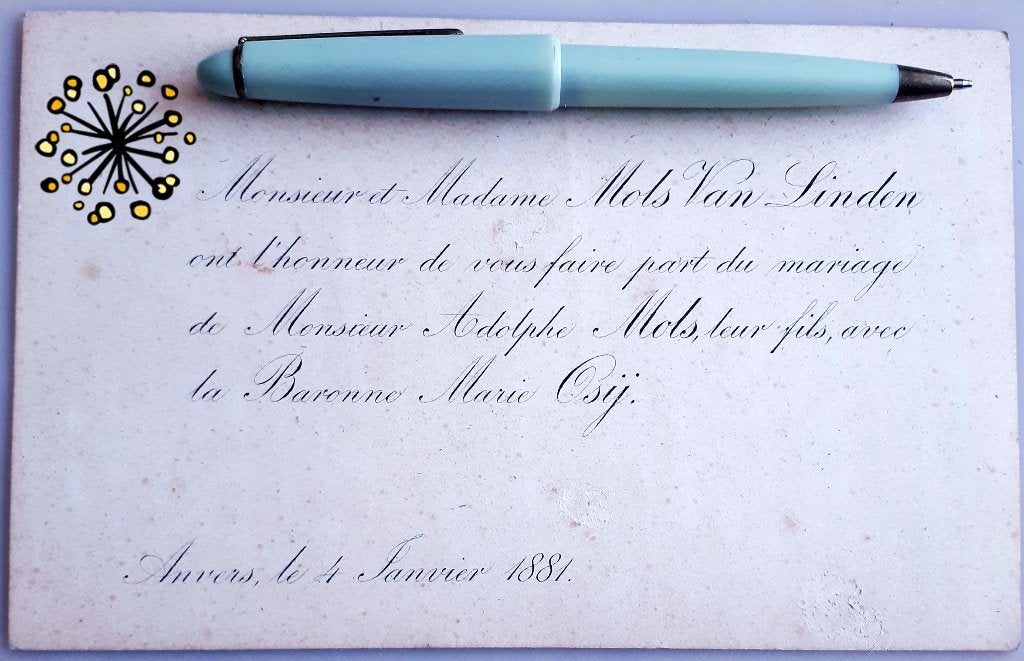 Monsieur et Madame Mols Van Linden
ont l'honneur de vous faire part du mariage
de Monsieur Adolphe Mols, leur fils, avec
la Baronne Marie Osij.
Anvers, le 4 Janvier 1881.